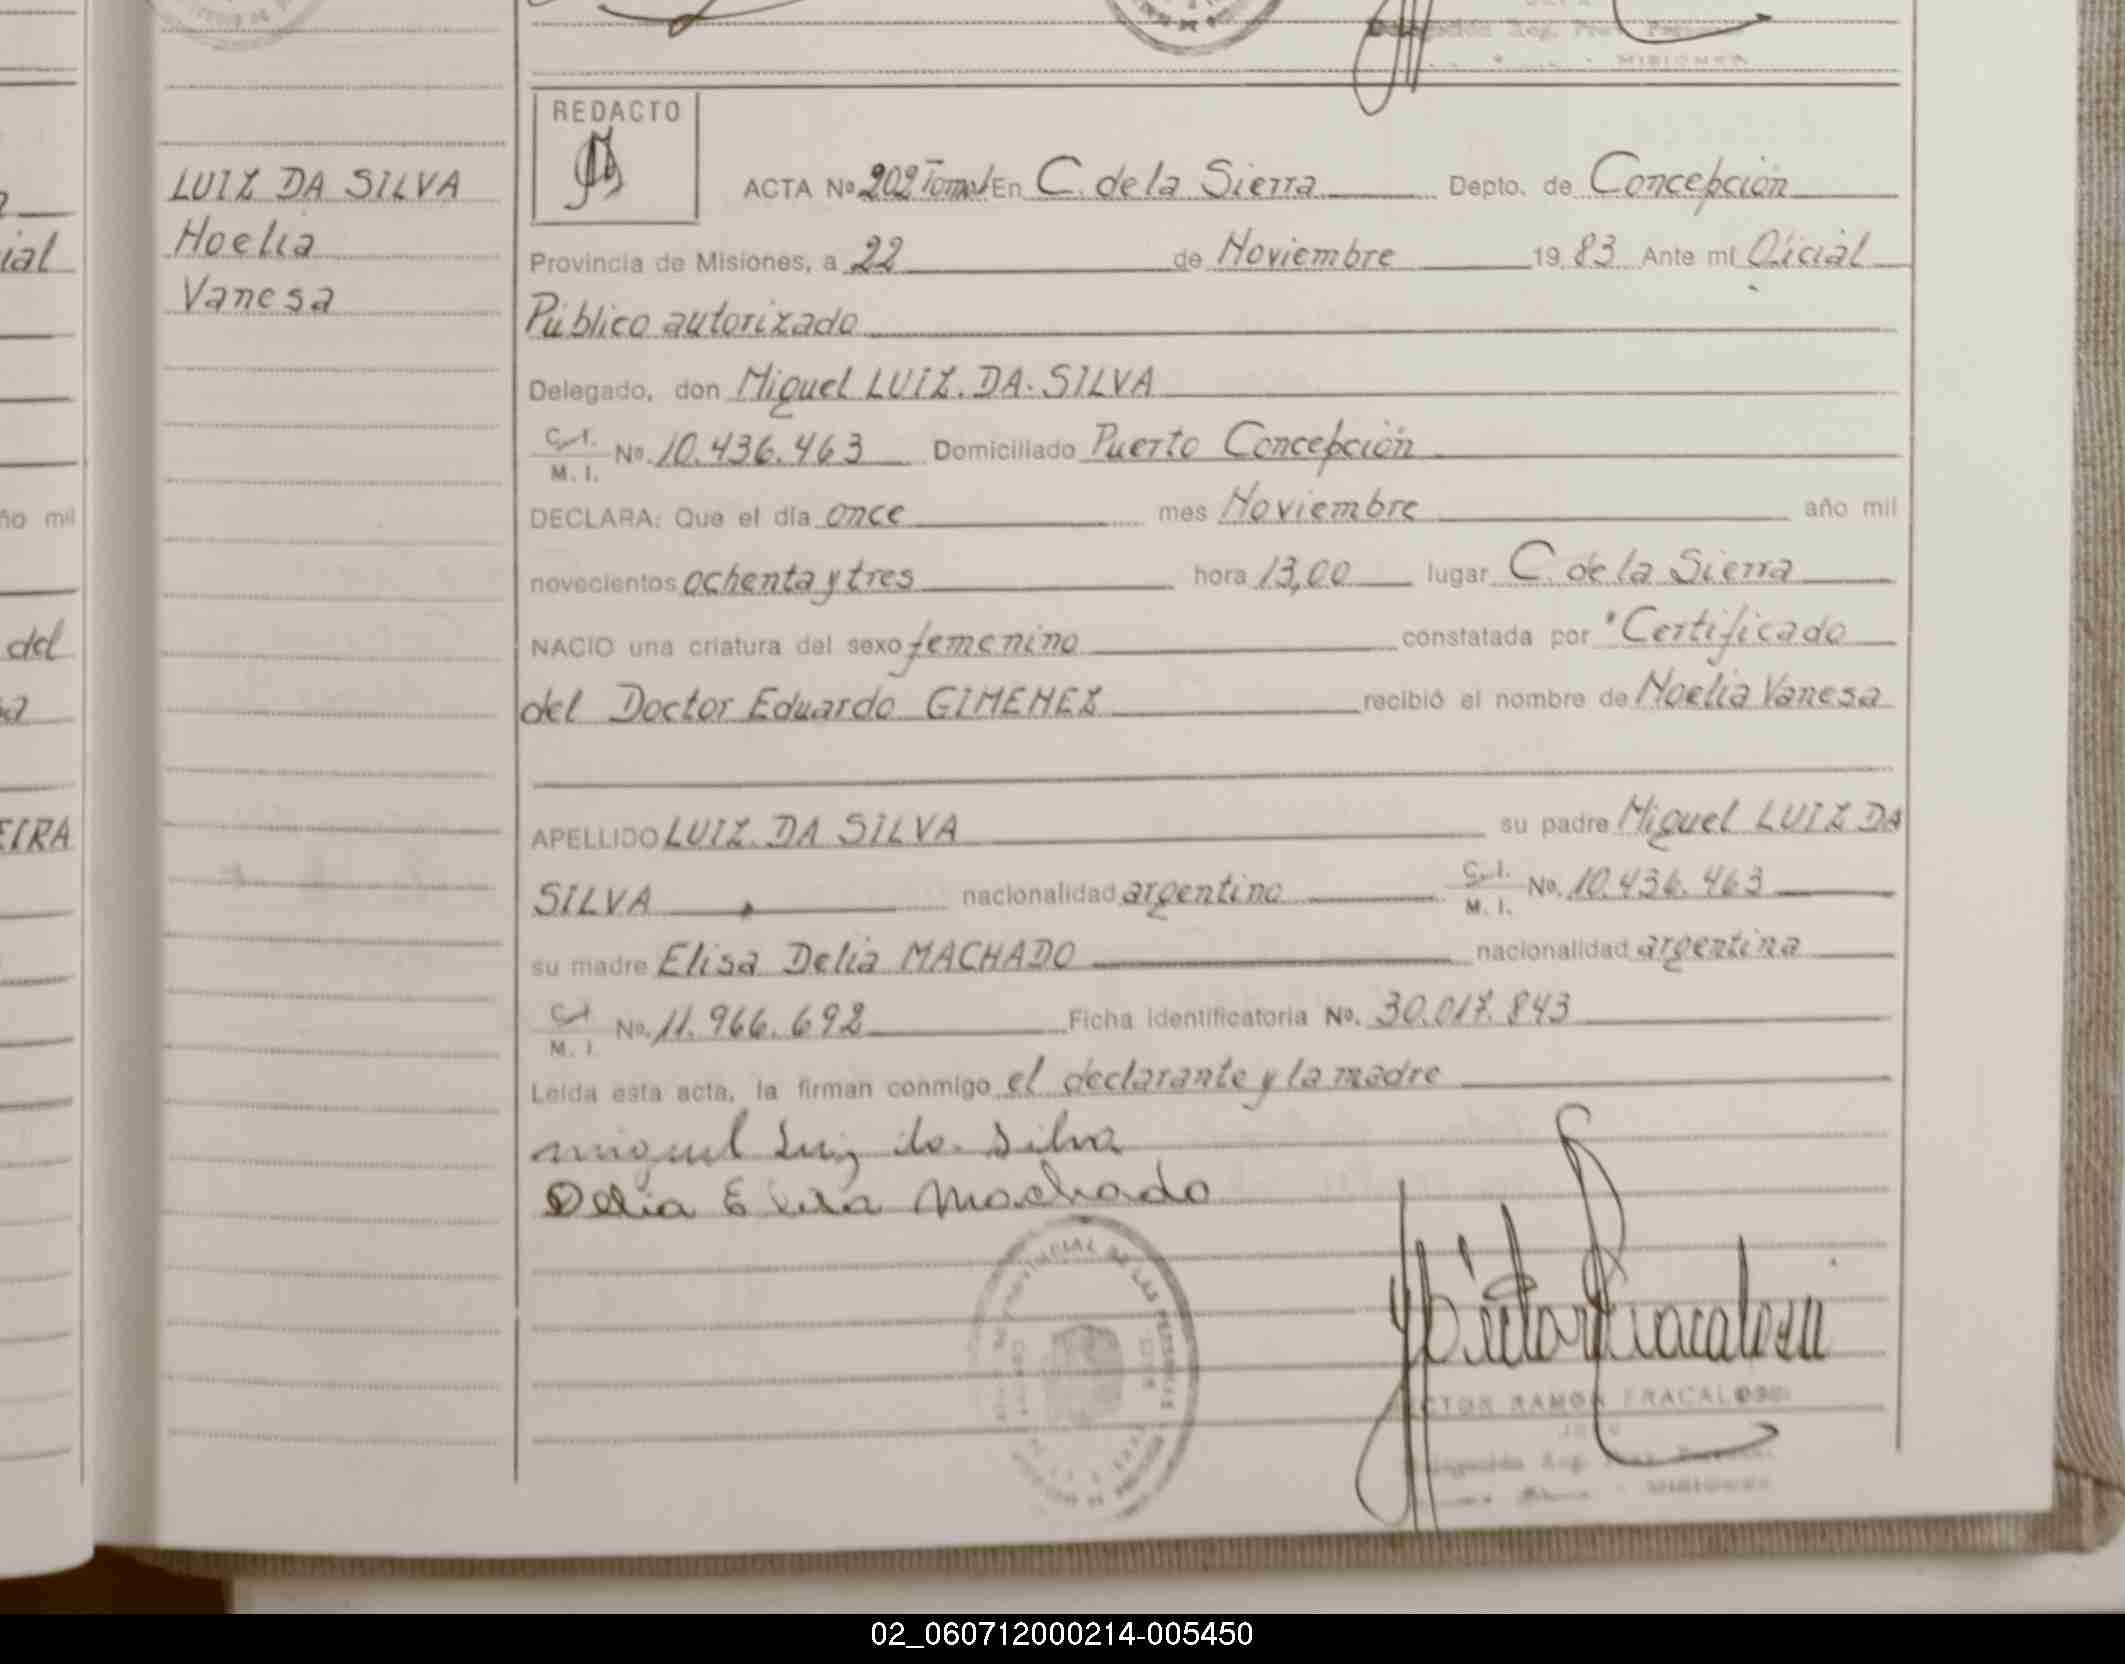 REDACTO
ACTA No 202 Tomo I En C. de la Sierra Depto. de Concepción
LUIZ DA SILVA
Noelia
Vanesa
Provincia de Misiones, a 22 de Noviembre 19 83 Ante mi Oficial
Público autorizado
Delegado, don Miguel LUIZ. DA. SILVA
C. I.
M. I. No. 10.436.463 Domiciliado Puerto Concepción
DECLARA: Que el día once mes Noviembre año mil
novecientos ochenta y tres hora 13,00 lugar C. de la Sierra
NACIO una criatura del sexo femenino constatada por Certificado
del Doctor Eduardo GIMENEZ recibió el nombre de Noelia Vanesa
APELLIDO LUIZ. DA SILVA su padre Miguel LUIZ DA
SILVA nacionalidad argentino C. I.
M. I. No. 10.436.463
su madre Elisa Delia MACHADO nacionalidad argentina
C. I.
M. I. No. 11.966.692 Ficha identificatoria No. 30.017.843
Leída esta acta, la firman conmigo el declarante y la madre
miguel Luiz da Silva
Delia Elisa Machado
VICTOR RAMON FRACALOSSI
MISIONES
02_060712000214-005450